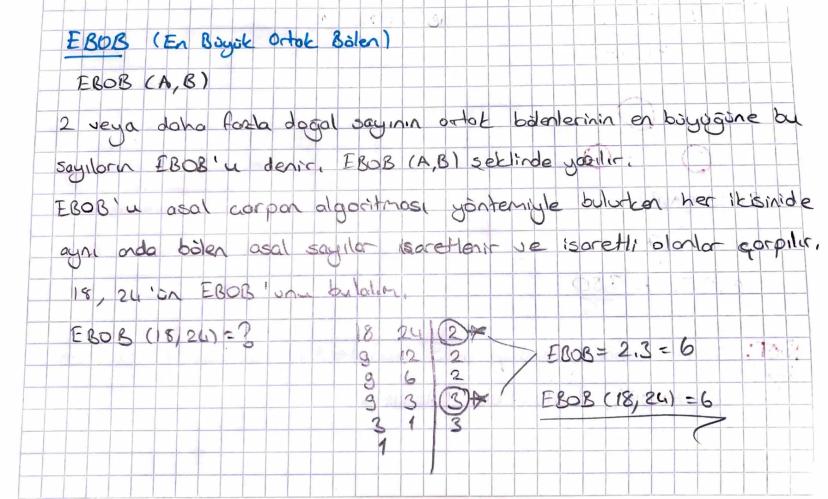 EBOB (En Büyük Ortak Bölen)
EBOB (A,B)
2 veya daha fazla doğal sayının ortak bölenlerinin en büyüğüne bu
sayıların EBOB'u denir. EBOB (A,B) şeklinde yazılır.
EBOB'u asal çarpan algoritması yöntemiyle bulurken her ikisinide
aynı anda bölen asal sayılar işaretlenir ve işaretli olanlar çarpılır.
18, 24'ün EBOB'unu bulalım.
EBOB (18,24)=?
18 24 | 2 *
9 12 | 2
9 6 | 2
9 3 | 3 *
3 1 | 3
1
EBOB = 2.3 = 6
EBOB (18,24) = 6